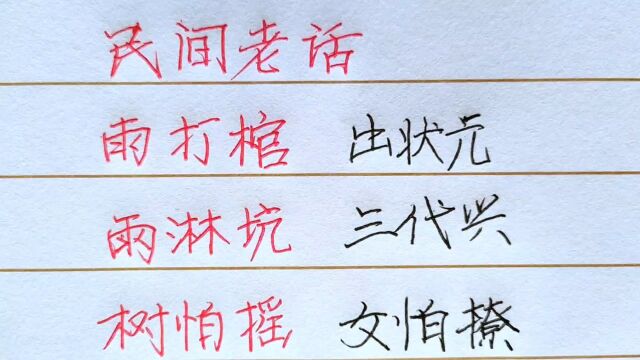 民间老话
雨打棺 出状元
雨淋坑 三代兴
树怕摇 女怕撩